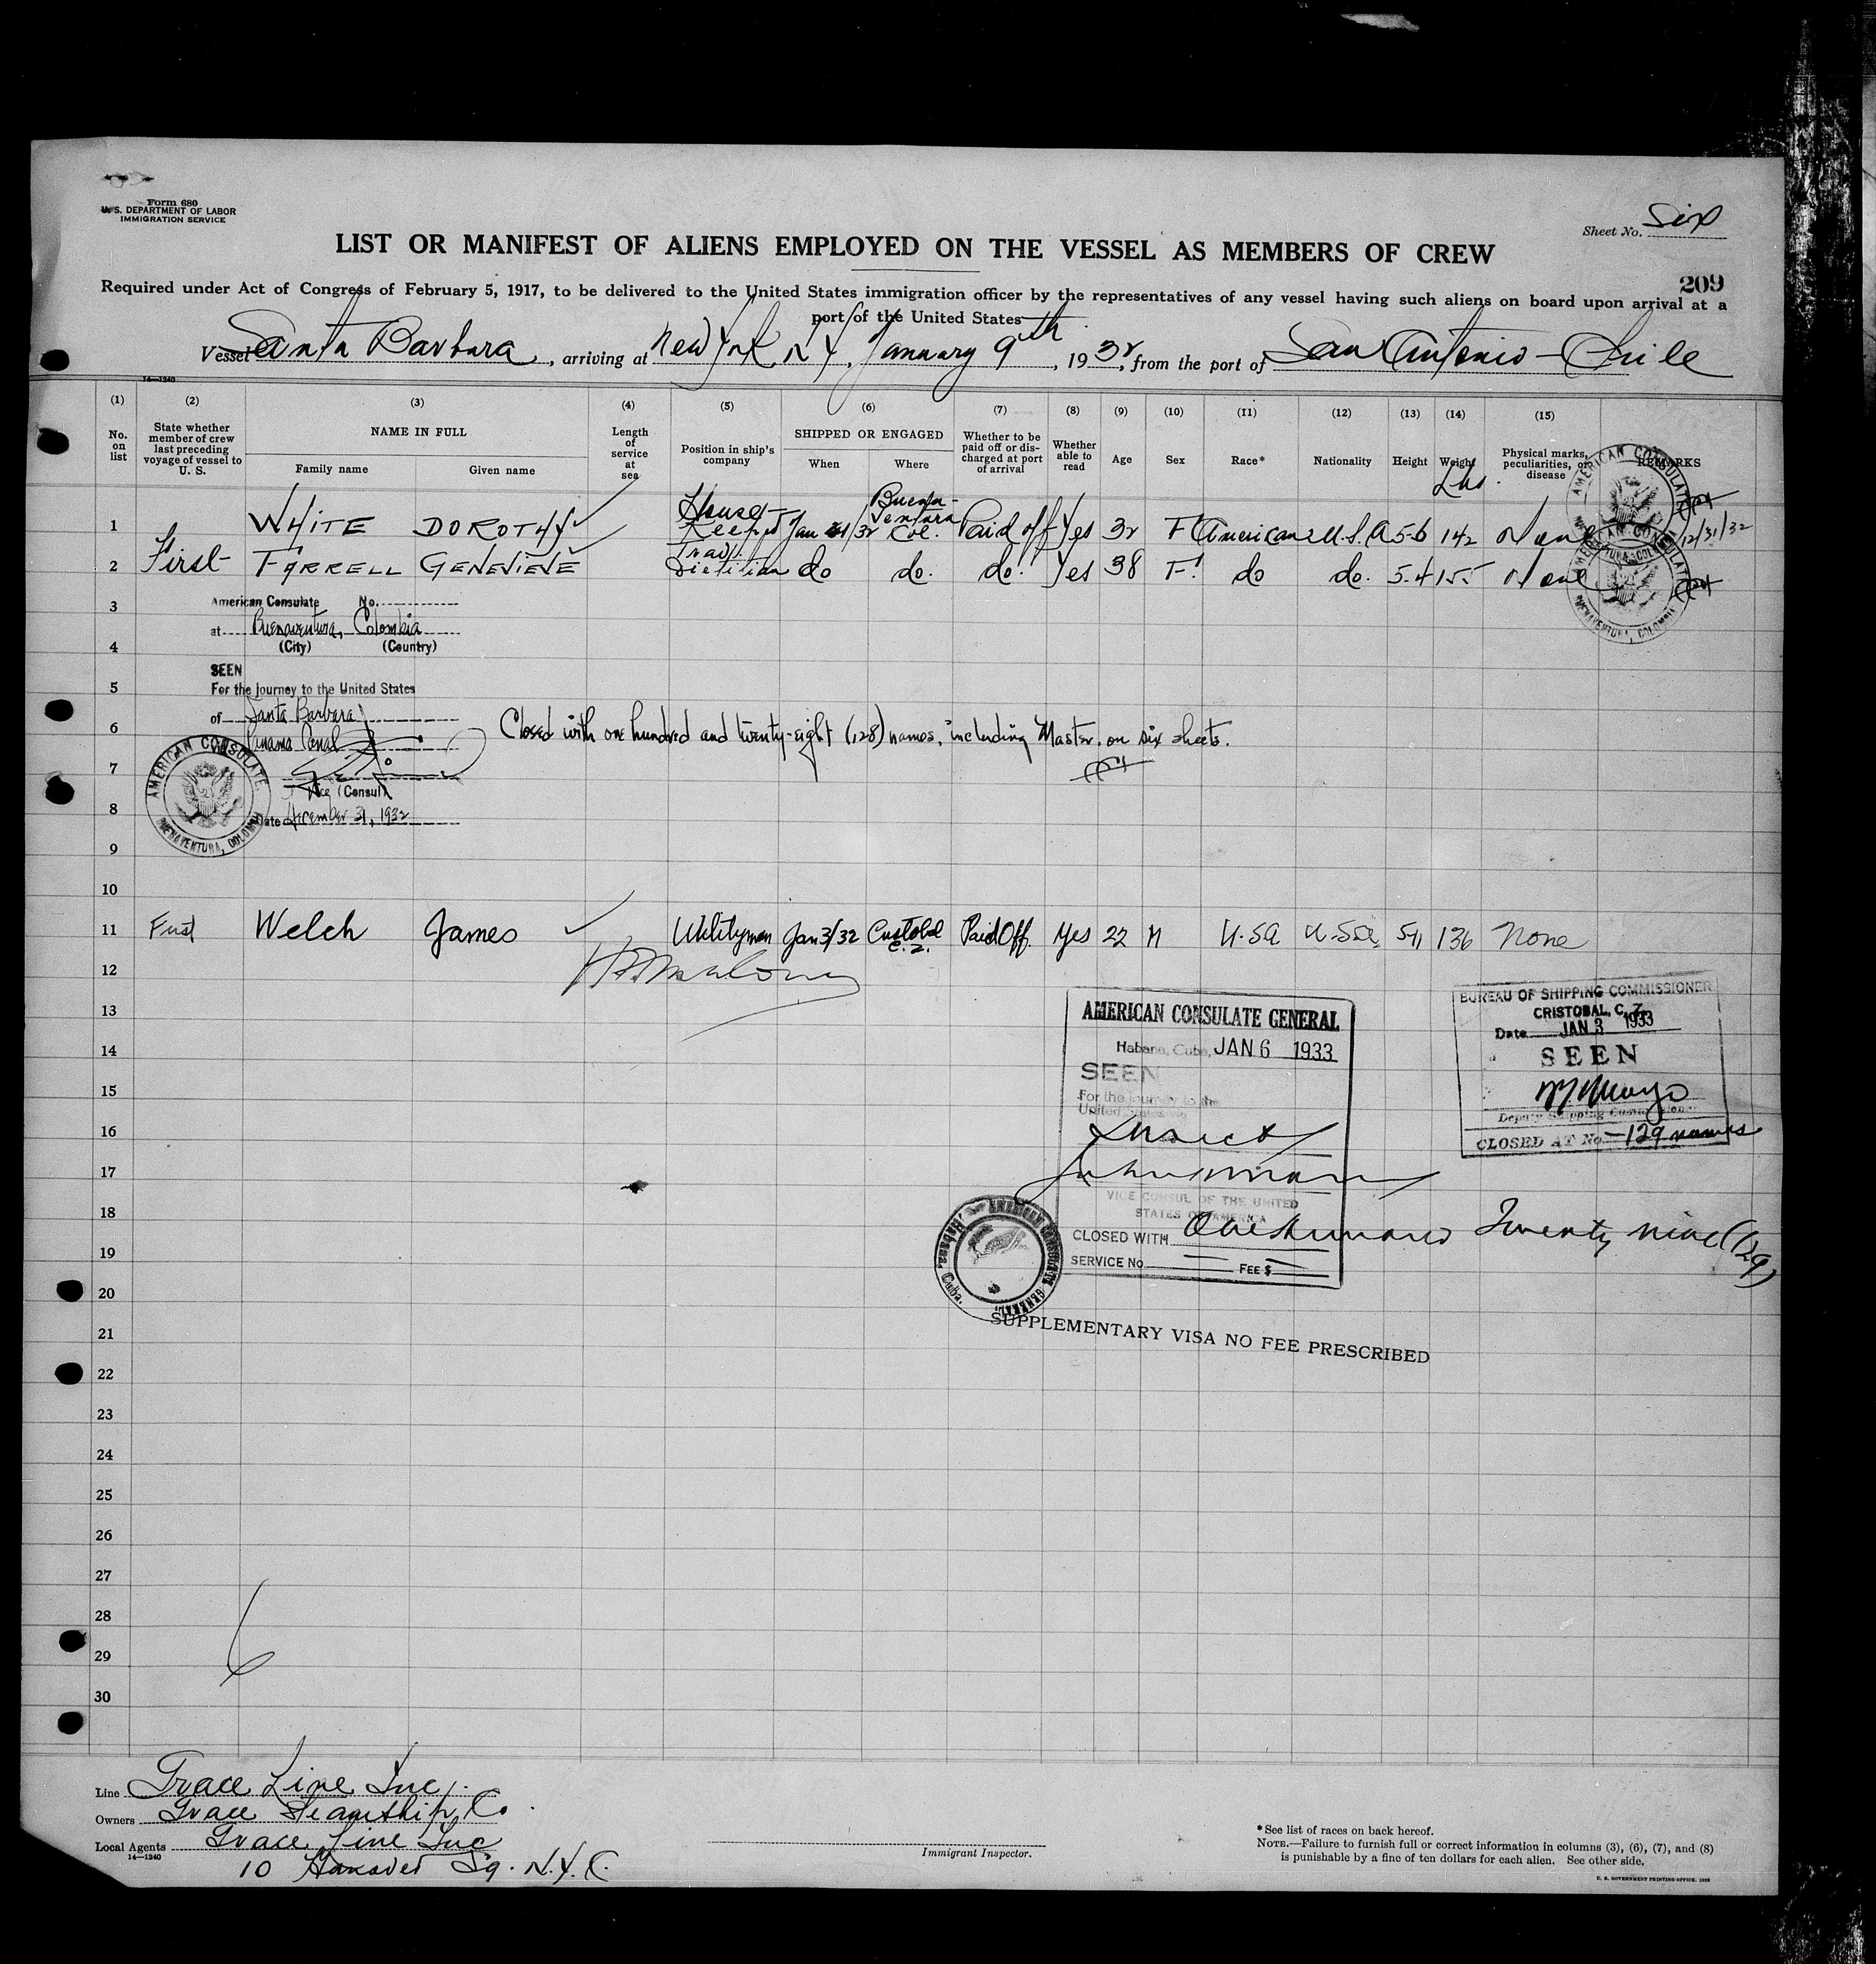 Form 680
U. S. DEPARTMENT OF LABOR
IMMIGRATION SERVICE
Sheet No. Six
LIST OR MANIFEST OF ALIENS EMPLOYED ON THE VESSEL AS MEMBERS OF CREW
209
Required under Act of Congress of February 5, 1917, to be delivered to the United States immigration officer by the representatives of any vessel having such aliens on board upon arrival at a
port of the United States
Vessel Santa Barbara, arriving at New York N.Y., January 9th, 1932, from the port of San Antonio - Chile
14—1240
(1) (2) (3) (4) (5) (6) (7) (8) (9) (10) (11) (12) (13) (14) (15)
No. on list
State whether member of crew last preceding voyage of vessel to U. S.
NAME IN FULL
Family name
Given name
Length of service at sea
Position in ship's company
SHIPPED OR ENGAGED
When
Where
Whether to be paid off or discharged at port of arrival
Whether able to read
Age
Sex
Race*
Nationality
Height
Weight
Lbs.
Physical marks, peculiarities, or disease
REMARKS
1 WHITE DOROTHY House-Keeper Jan 1/32 Buena-Ventura Col. Paid off Yes 32 F American U.S.A 5-6 142 None 12/31/32
2 First FARRELL GENEVIEVE Dietitian do do. do. Yes 38 F. do do. 5-4 155 None
AMERICAN CONSULATE
BUENAVENTURA, COLOMBIA
AMERICAN CONSULATE
BUENAVENTURA, COLOMBIA
3
American Consulate No.
at Buenaventura, Colombia
(City) (Country)
4
SEEN
5
For the journey to the United States
of Santa Barbara
6
Panama Canal
Closed with one hundred and twenty-eight (128) names, including Master, on six sheets.
7
Vice (Consul)
8
Date December 31, 1932
AMERICAN CONSULATE
BUENAVENTURA, COLOMBIA
9
10
11 First Welch James Utilityman Jan 3/32 Cristobal C.Z. Paid Off. Yes 22 M U.S.A U.S.A. 5-11 136 None
12
13
14
15
16
17
18
19
20
21
22
23
24
25
26
27
28
29
30
AMERICAN CONSULATE GENERAL
Habana, Cuba, JAN 6 1933
SEEN
For the journey to the
United States via
VICE CONSUL OF THE UNITED
STATES OF AMERICA
CLOSED WITH One hundred Twenty nine (129)
SERVICE No. FEE $
AMERICAN CONSULATE GENERAL
Habana, Cuba.
SUPPLEMENTARY VISA NO FEE PRESCRIBED
BUREAU OF SHIPPING COMMISSIONER
CRISTOBAL, C. Z.
Date JAN 3 1933
SEEN
Deputy Shipping Commissioner
CLOSED AT No. -129 names
6
Line Grace Line Inc.
Owners Grace Steamship Co.
Local Agents Grace Line Inc
14—1240
10 Hanover Sq. N.Y.C.
Immigrant Inspector.
* See list of races on back hereof.
NOTE.—Failure to furnish full or correct information in columns (3), (6), (7), and (8)
is punishable by a fine of ten dollars for each alien. See other side.